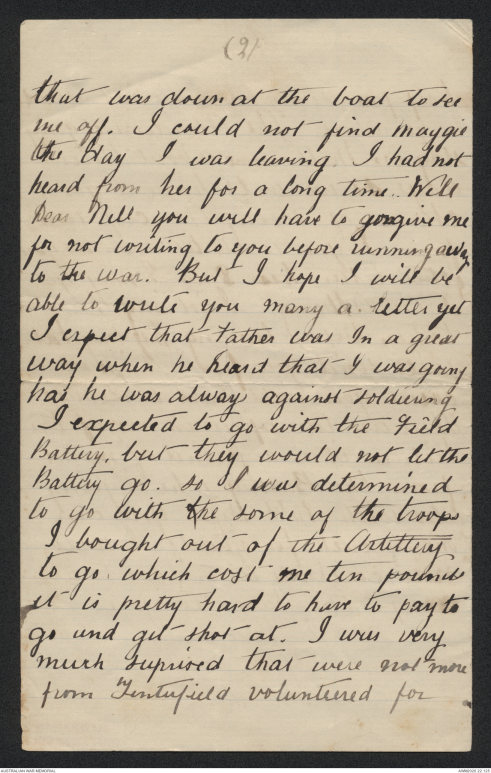 (2)
that was down at the boat to see
me off. I could not find maygie
the day I was leaving I had not
heard from her for a long time. Well
Dear Nell you will have to forgive me
for not writing to you before running away
to the war. But I hope I will be
able to write you many a letter yet
I expect that Father was In a great
way when he heard that I was going
has he was alway against soldiering
I expected to go with the Field
Battery, but they would not let the
Battery go. so I was determined
to go with the some of the troops
I bought out of the Artillery
to go. which cost me ten pounds
it is pretty hard to have to pay to
go and get shot at. I was very
much suprised that were not more
from Tenterfield volunteered for
AUSTRALIAN WAR MEMORIAL